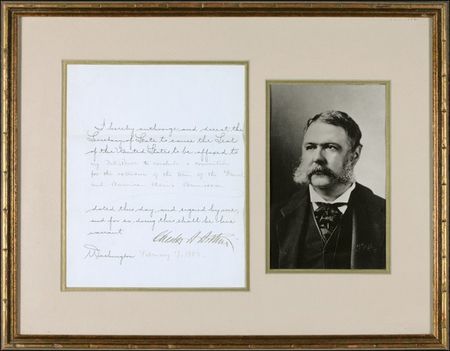 I hereby authorize and direct the
Secretary of State to cause the Seal
of the United States to be affixed to
my
for the extension of the term of the French
and American Claims Commission
dated this day, and signed by me,
and for so doing this shall be his
warrant.
Chester A Arthur
Washington, February 7, 1883.